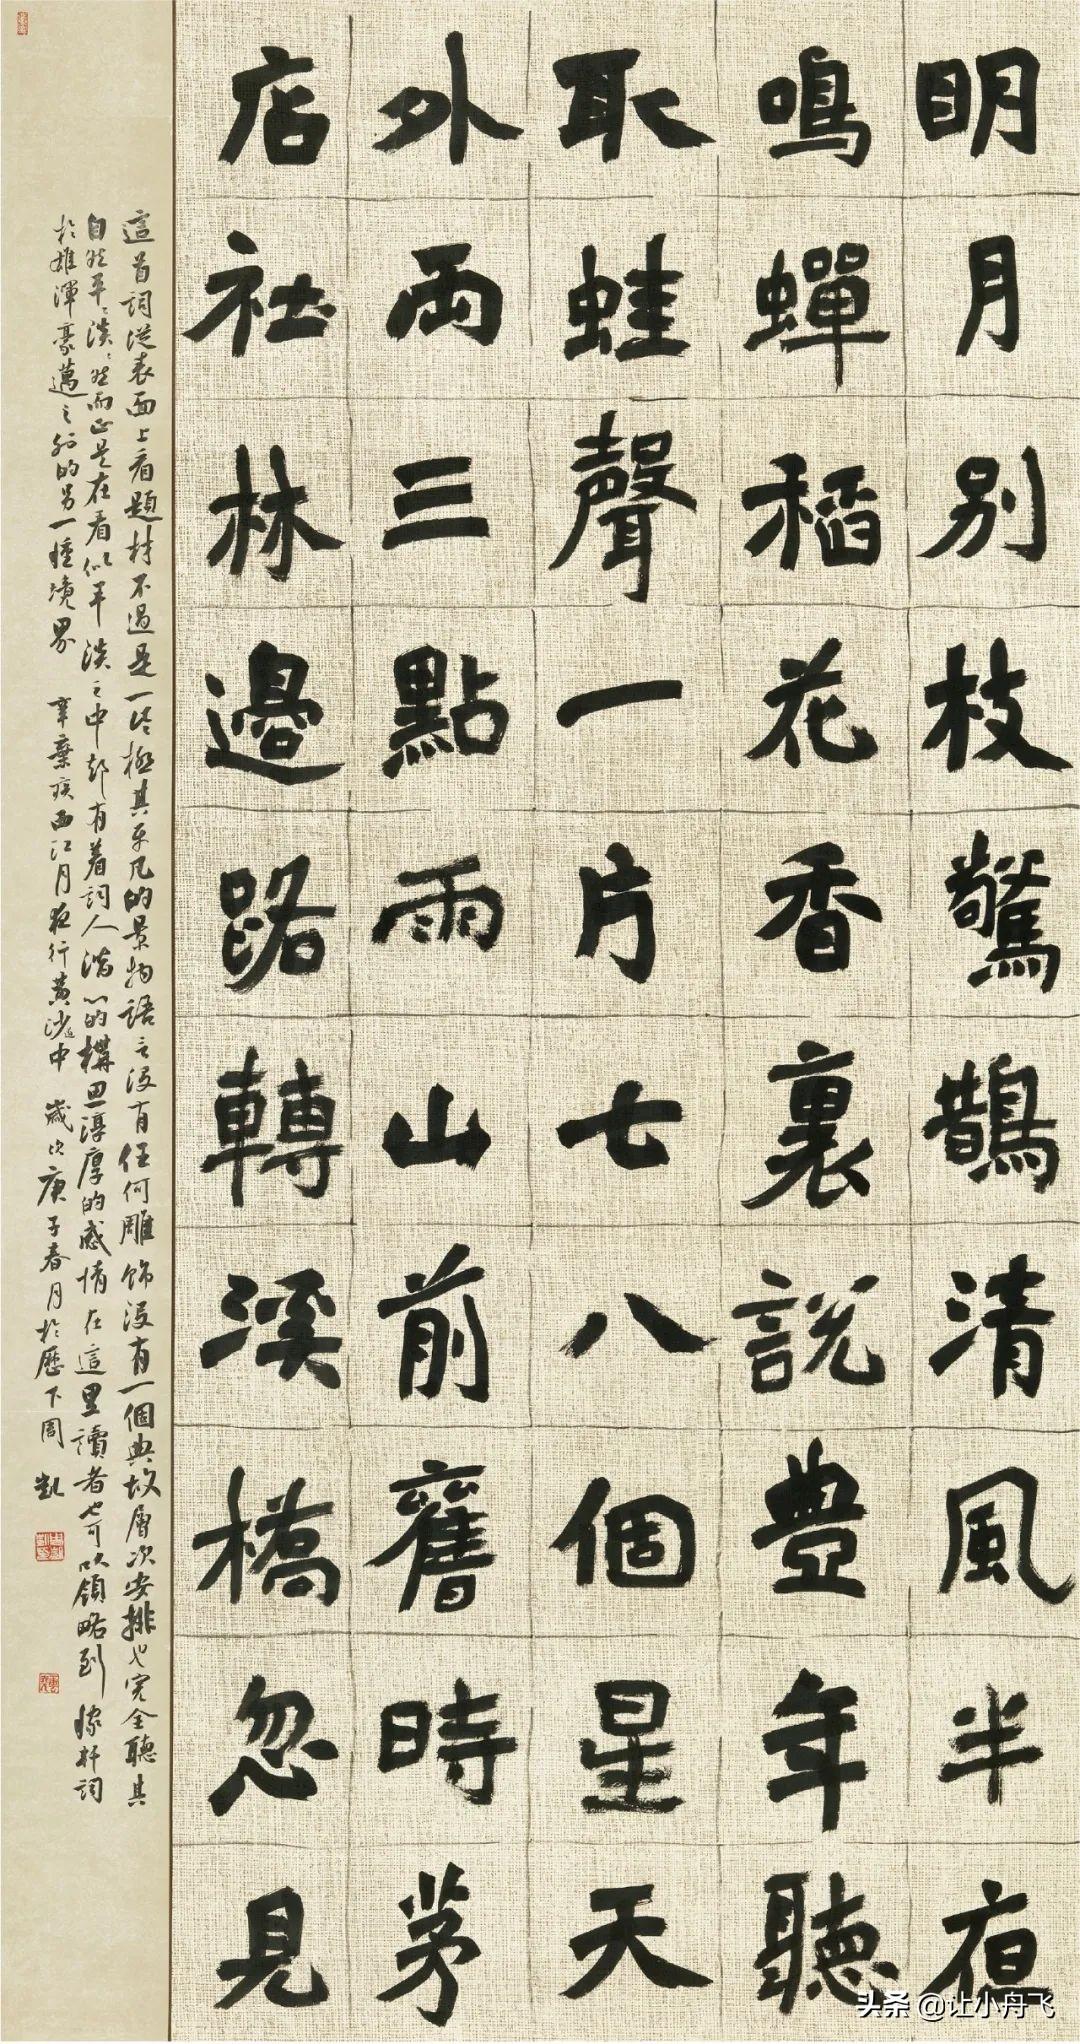 明月別枝驚鵲清風半夜
鳴蟬稻花香裏說豊年聽
取蛙聲一片七八個星天
外兩三點雨山前舊時茅
店社林邊路轉溪橋忽見
這首詞從表面上看題材不過是一些極其平凡的景物語言沒有任何雕飾沒有一個典故層次安排也完全聽其
自然平平淡淡然而正是在看似平淡之中却有着詞人潛心的構思淳厚的感情在這里讀者也可以領略到稼軒詞
於雄渾豪邁之外的另一種境界 辛棄疾西江月夜行黄沙道中 歲次庚子春月於歷下周凱
头条 @让小舟飞